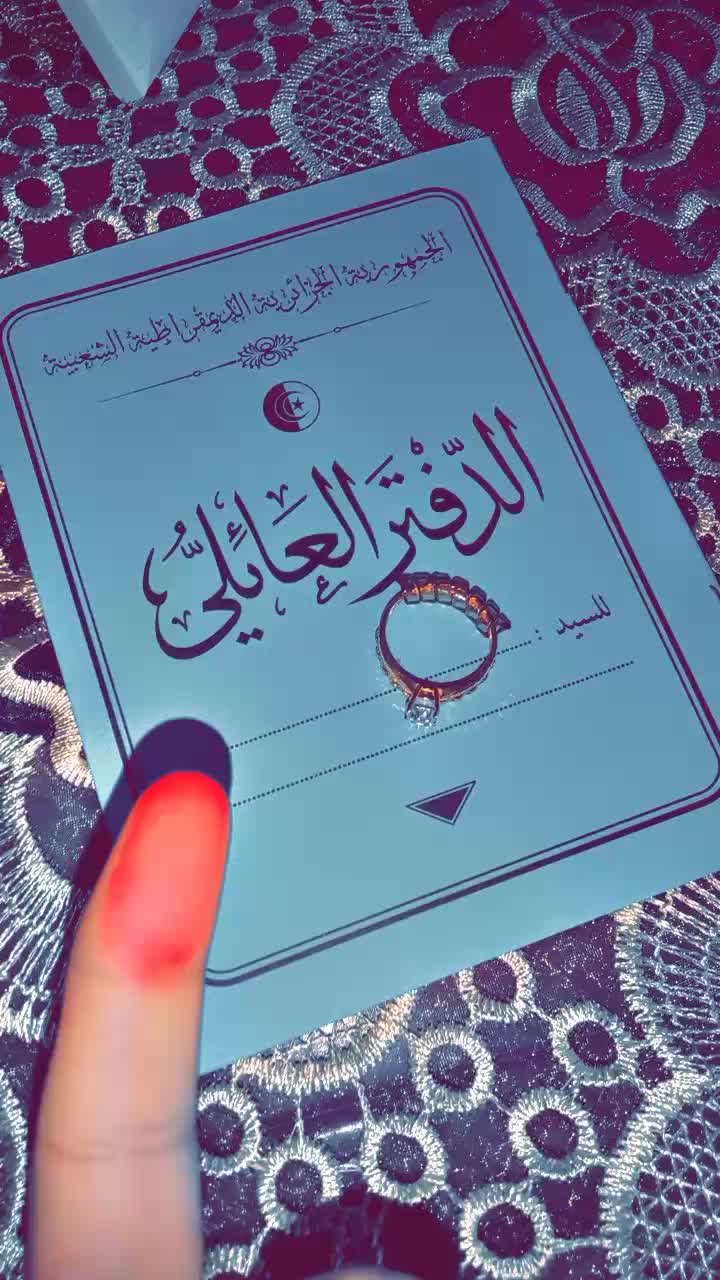 الجمهورية الجزائرية الديمقراطية الشعبية
الدّفْتَر العَائِليُّ
للسيد :